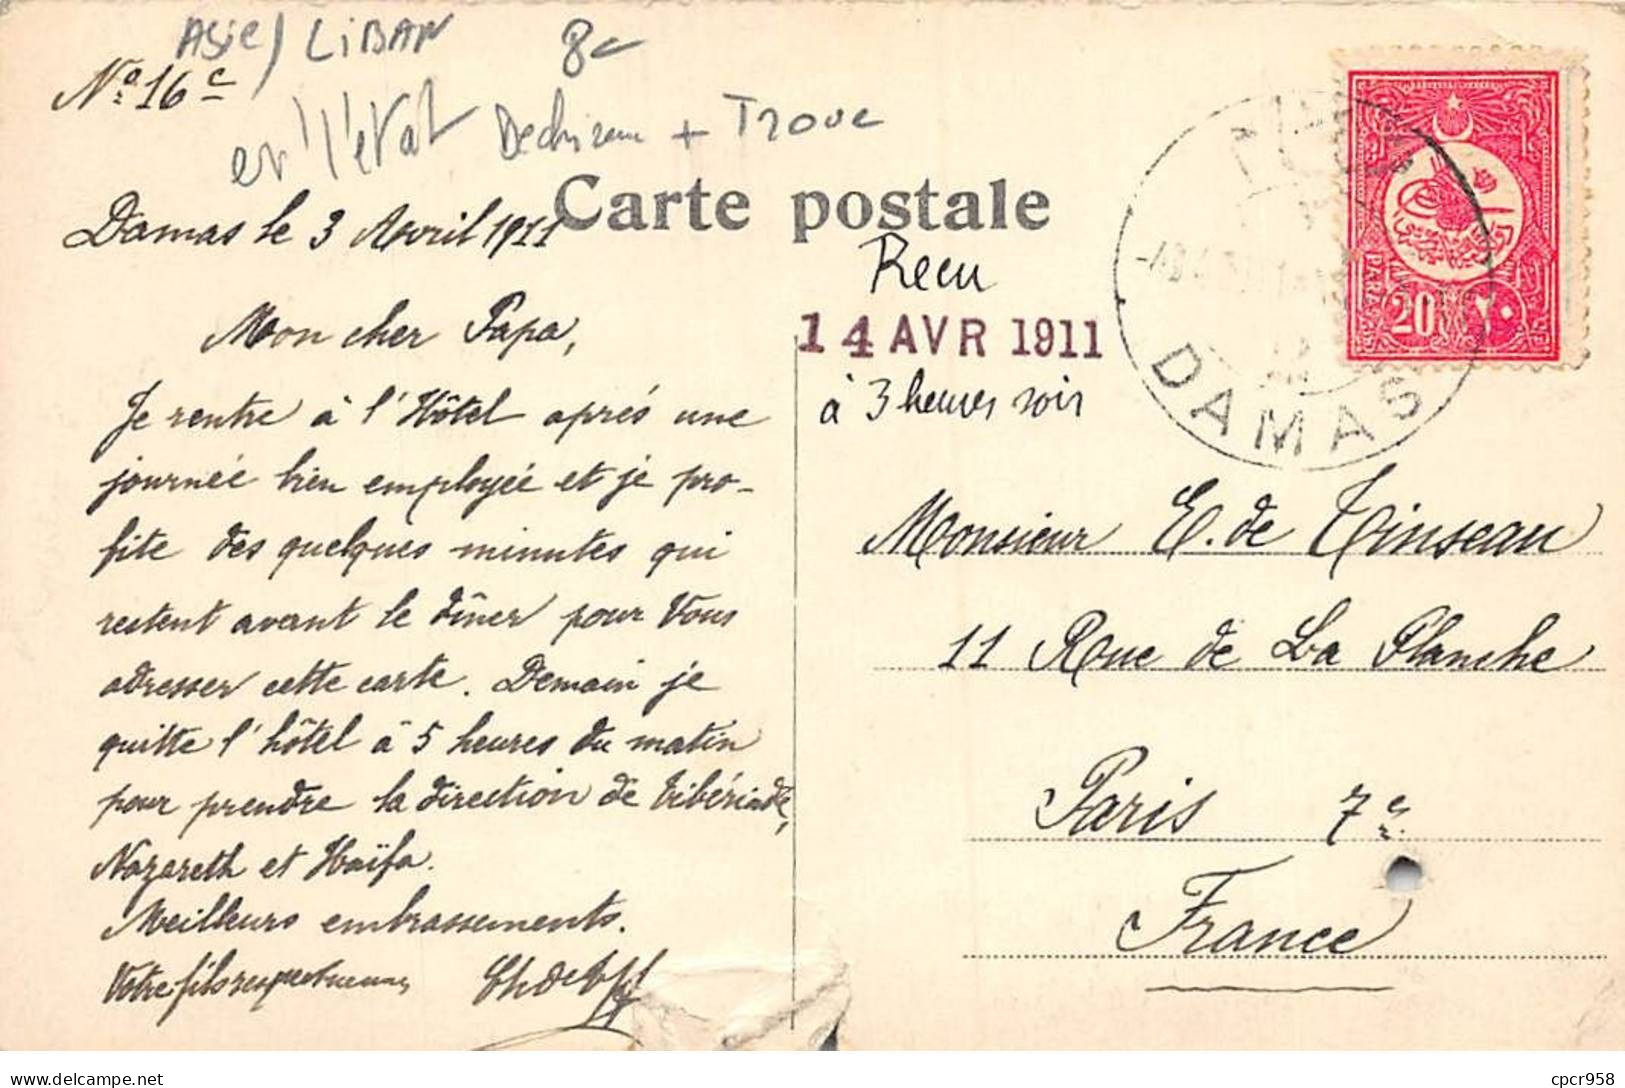 Asie / LiBAN 8€
No. 16 c
en l'état Dechirure + Trouc
Carte postale
Damas le 3 Avril 1911
Recu
14 AVR 1911
à 3 heures soir
DAMAS
20
٢٠
PARA
Mon cher Papa,
Je rentre à l'Hôtel aprés une
journée bien employée et je pro-
fite des quelques minutes qui
restent avant le dîner pour Vous
adresser cette carte. Demain je
quitte l'hôtel à 5 heures du matin
pour prendre la direction de Tibériade,
Nazareth et Haïfa.
Meilleurs embrassements.
Votre fils respectueux
Monsieur E. de Tinseau
11 Rue de La Planche
Paris 7e
France
delcampe.net
cpcr958